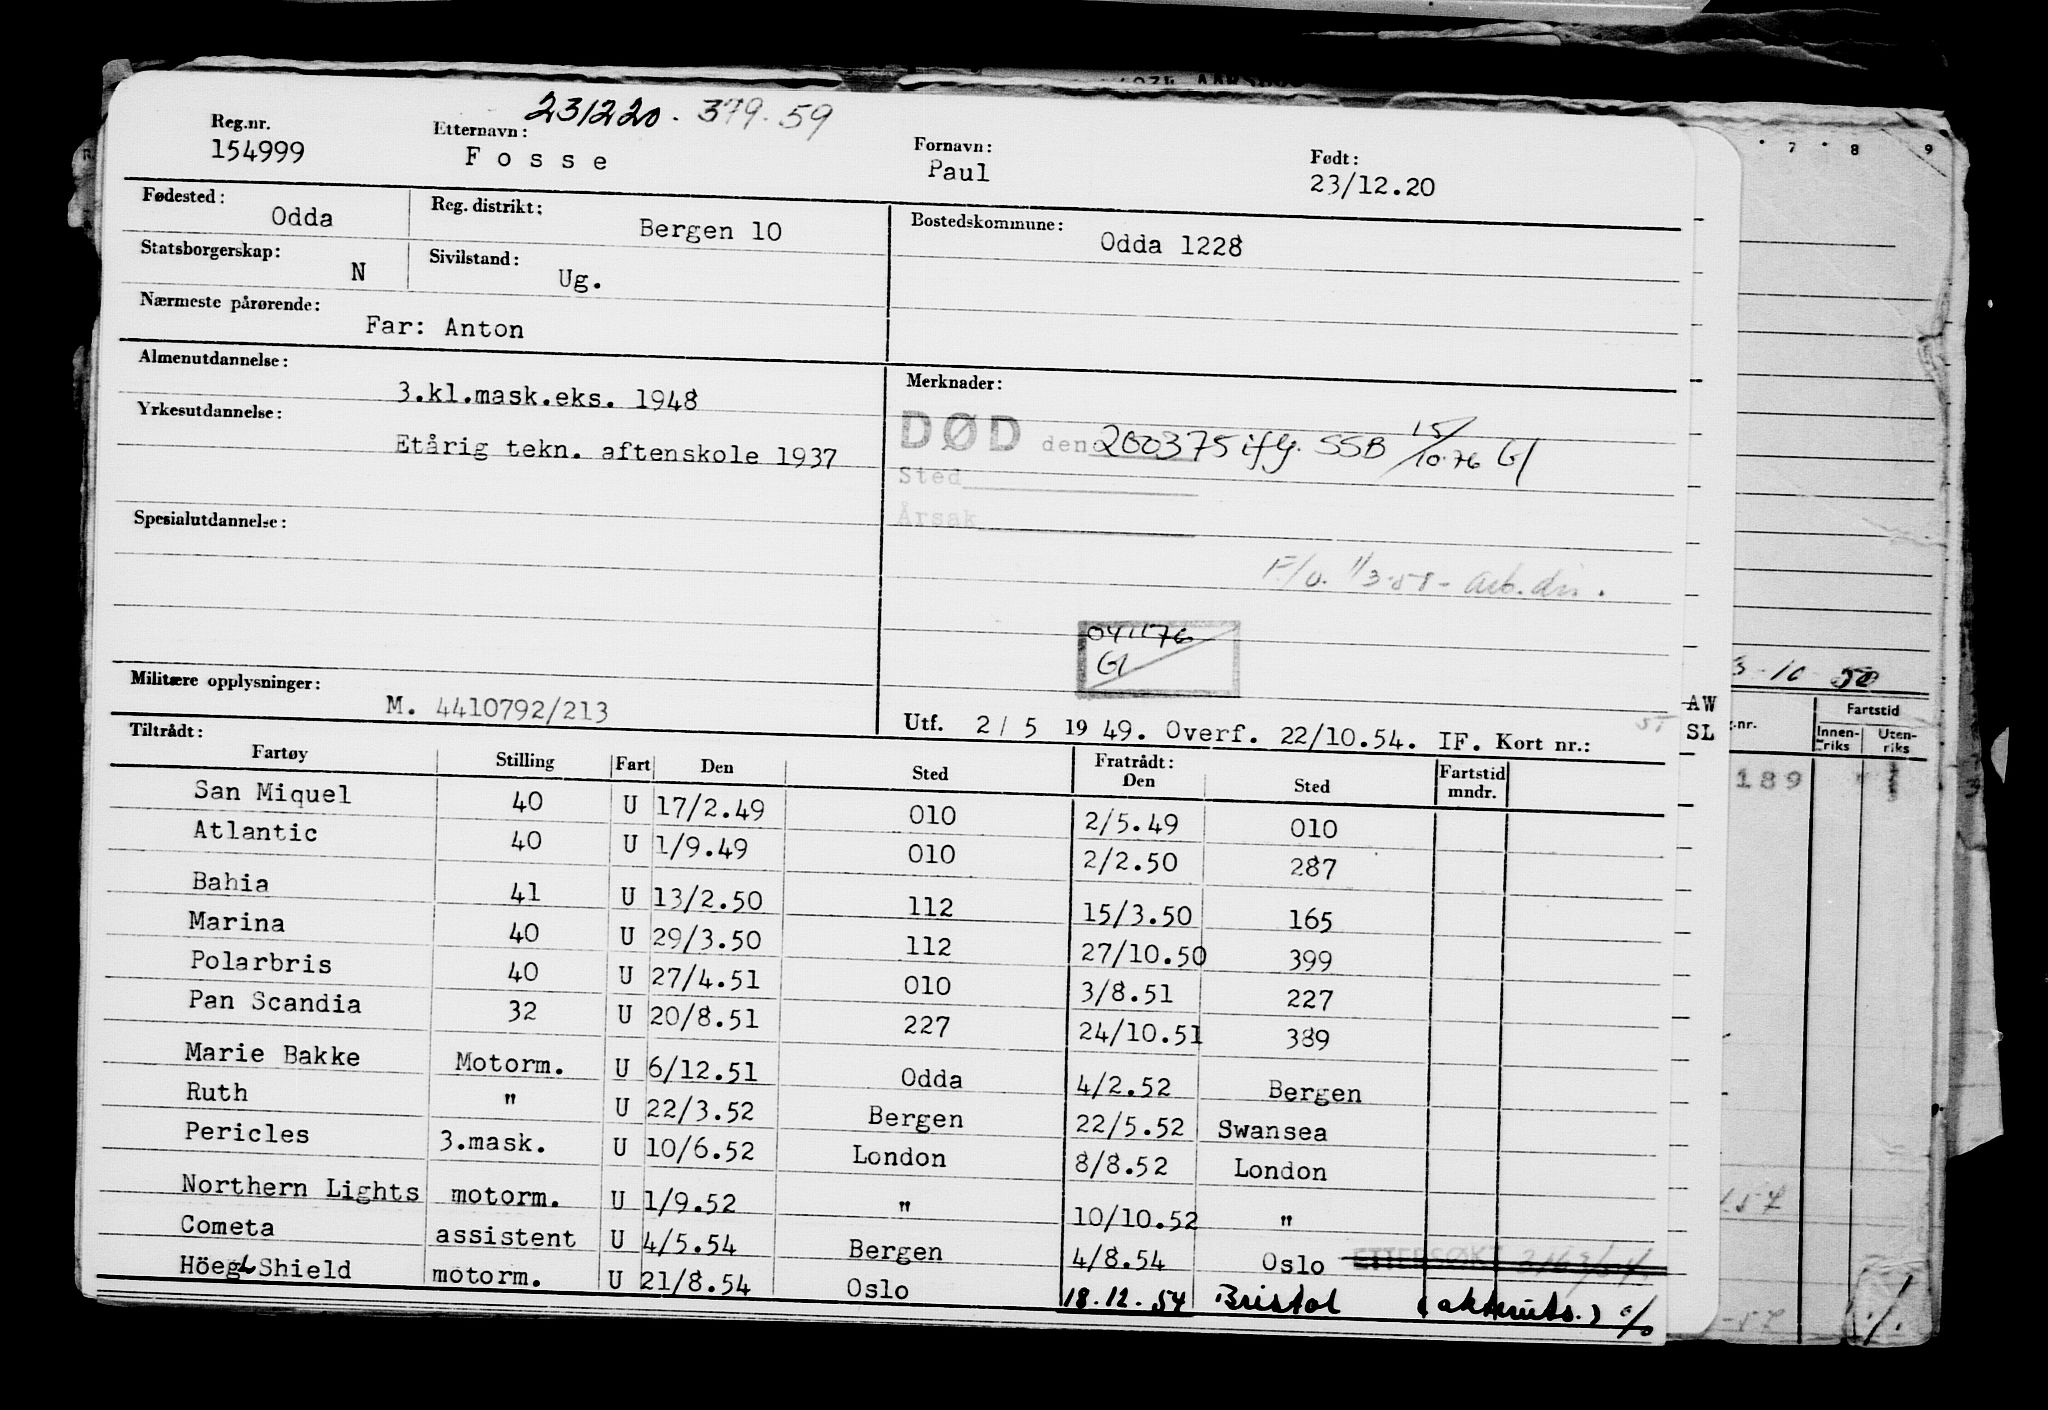 231220. 379.59
Reg.nr. Etternavn: Fornavn: Født:
154999 Fosse Paul 23/12.20
Fødested: Odda Reg. distrikt: Bergen 10 Bostedskommune: Odda 1228
Statsborgerskap: N Sivilstand: Ug.
Nærmeste pårørende: Far: Anton
Almenutdannelse: 3.kl.mask.eks. 1948
Merknader:
Yrkesutdannelse: Etårig tekn. aftenskole 1937
DØD den 200375 ifg. SSB 15/10.76 Gl
Sted
Årsak
Spesialutdannelse:
F/o. 11/3-58 - arb.dir.
041176
Gl
Militære opplysninger: M. 4410792/213
Utf. 2/5 1949. Overf. 22/10.54. IF. Kort nr.:
Tiltrådt: Fratrådt:
Fartøy Stilling Fart Den Sted Den Sted Fartstid mndr.
San Miquel 40 U 17/2.49 010 2/5.49 010
Atlantic 40 U 1/9.49 010 2/2.50 287
Bahia 41 U 13/2.50 112 15/3.50 165
Marina 40 U 29/3.50 112 27/10.50 399
Polarbris 40 U 27/4.51 010 3/8.51 227
Pan Scandia 32 U 20/8.51 227 24/10.51 389
Marie Bakke Motorm. U 6/12.51 Odda 4/2.52 Bergen
Ruth " U 22/3.52 Bergen 22/5.52 Swansea
Pericles 3.mask. U 10/6.52 London 8/8.52 London
Northern Lights motorm. U 1/9.52 " 10/10.52 "
Cometa assistent U 4/5.54 Bergen 4/8.54 Oslo ETTERSØKT
Höegh Shield motorm. U 21/8.54 Oslo 18.12.54 Bristol
7 8 9
3-10 50
AW
SL
Fartstid
Innenriks Utenriks
189